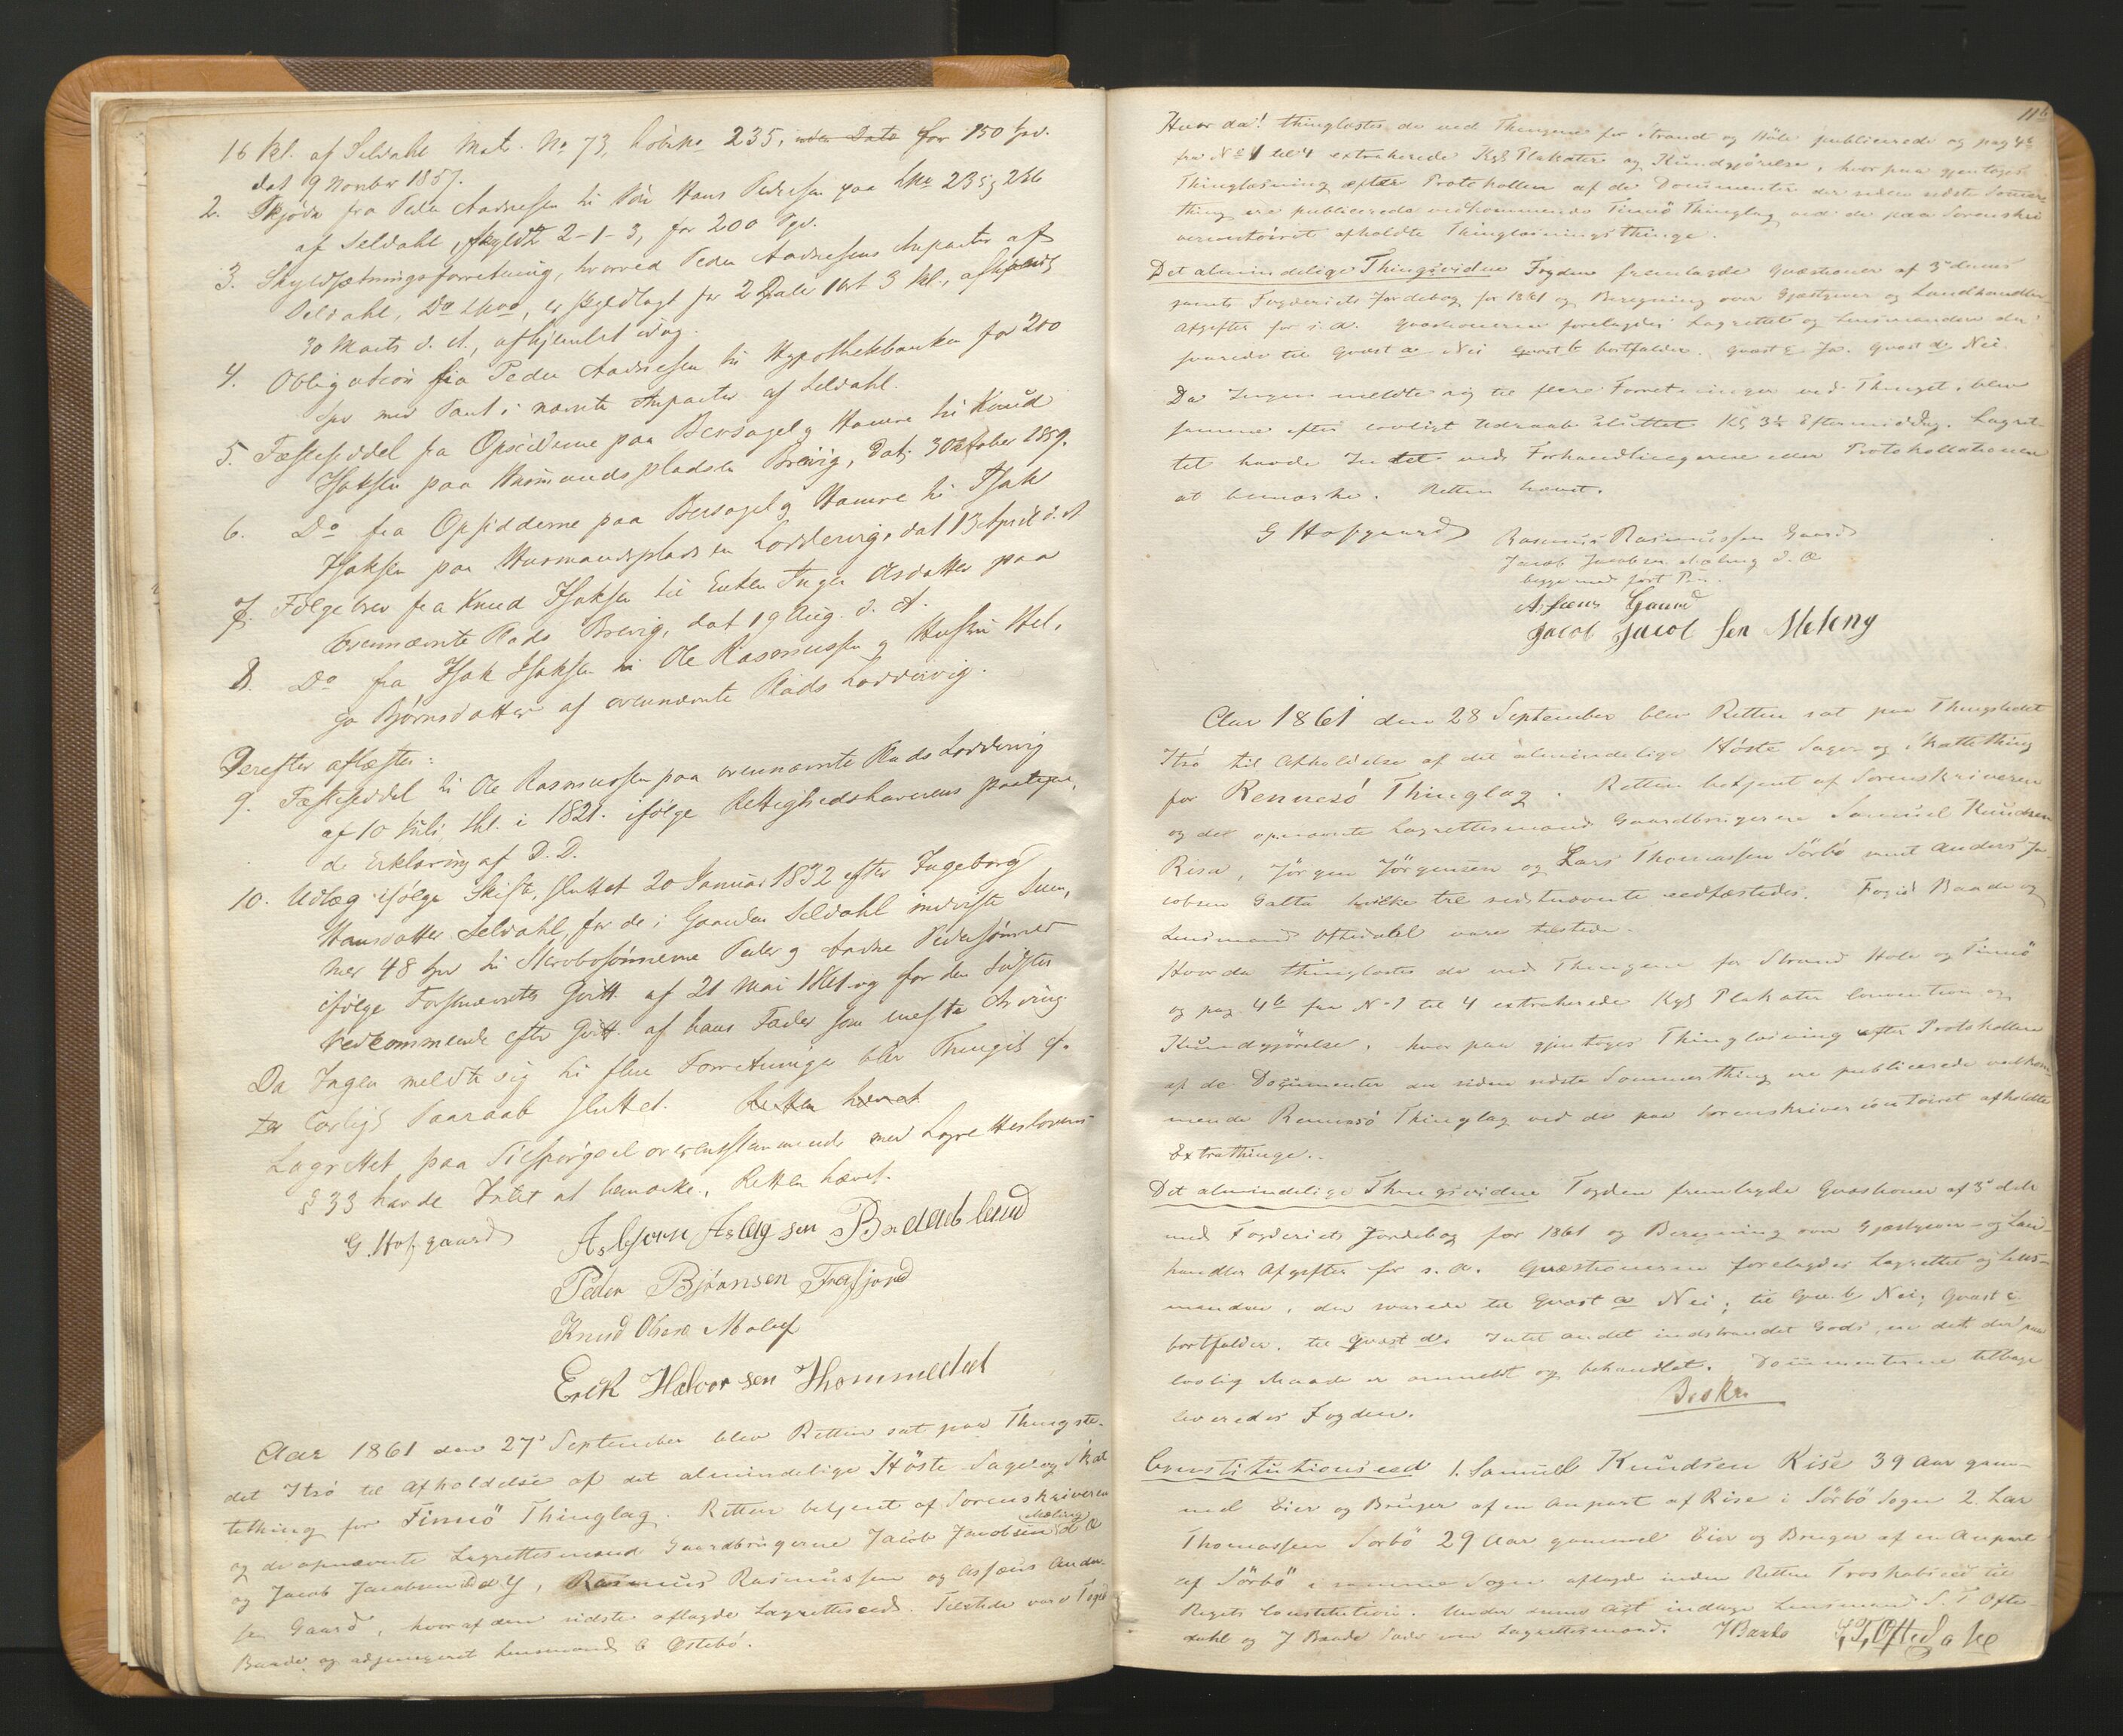 16 kl. af Seldahl Matr. No 73, Löbeno 235, uden Dato for 150 Spd.
dat 9 Novber 1857.
2. Skjöde fra Peder Aadnesen til Sön Hans Pedersen paa LNo 235 g 266
af Seldahl, skyldtr 2-1-3, for 200 Spd.
3. Skyldsætningsforretning, hvorved Peder Aadnesens Anparter af
Seldahl, Do LNoo, er skyldlagt for 2 Daler 1 ort 3 kl., afhjemlet
30 Marts d. A., afhjemlet idag.
4. Obligation fra Peder Aadnesen til Hypothekbanken for 200
Spd med Pant i nævnte Anparter af Seldahl.
5. Fæsteseddel fra Opsidderne paa Bersagel g Hamre til Knud
Isaksen paa Husmandspladsen Brevig, dat. 30 oktober 1859.
6. Do fra Opsidderne paa Bersagel g Hamre til Isak
Isaksen paa Husmandspladsen Loddervig, dat 13 April d. A
7. Fölgebrev fra Knud Isaksen til Enken Inger Olsdatter paa
ovennævnte Plads Brevig, dat 19 Aug. d. A.
8. Do fra Isak Isaksen til Ole Rasmussen g Hustru Hel-
ga Bjørnsdatter af ovennævnte Plads Loddervig.
Derefter aflæstes:
9. Fæsteseddel til Ole Rasmussen paa ovennævnte Plads Loddervig
af 10 Juli thl. i 1821. ifölge Rettighedshaverens paategne-
de Erklæring af D. D.
10. Udlæg ifölge Skifte, sluttet 20 Januar 1832 efter Ingeborg
Hansdatter Seldahl, for de i Gaarden Seldahl indeviste Sum-
mer 48 Spd til Myrboesönnerne Peder g Aadne Pedersönner
ifölge Förstnævntes Qvitt. af 21 Mai 1861 og for den Sidstes
Vedkommende efter Qvitt. af hans Fader som næste Arving.
Da Ingen meldte sig til flere Forretninger blev Thinget ef-
ter lovligt Paaraab sluttet. Retten hævet
Lagrettet paa Tilspörgsel overensstemmende med Lagretteslovens
§ 33 havde Intet at bemærke. Retten hævet.
G. Hofgaard
Asbjørn Aslagsen Bradeland
Peder Bjørnsen Frafjord
Knud Olsen Maley
Erik Halvorsen Hommedal
Aar 1861 den 27de September blev Retten sat paa Thingste-
det Itsö til Afholdelse af det almindelige Höste Sage og Skat
tething for Finnö Thinglag. Retten betjent af Sorenskriveren
og de opnævnte Lagrettesmænd Gaardbrugerne Jacob Jacobsen Meling d Æ
og Jacob Jacobsen d y, Rasmus Rasmussen og Assæus Ander-
sen Gaard, hvoraf den sidste aflagde Lagretteseed. Tilstede var Foged
Baade og adjungeret Lensmand C Østebö.
116
Hvor da! thinglæstes de ved Thingene for Strand og Höle publicerede og pag 4b
fra No 1 til 4 extraherede Kgl Plakater og Kundgjörelse, hvorpaa gjentoges
Thinglæsning efter Protokollen af de Documenter der siden sidste Sommer
thing ere publicerede vedkommende Finnö Thinglag ved de paa Sorenskri
vercontoiret afholdte Thinglæsningsthinge.
Det almindelige Thingsvidne Fogden fremlagde Qvæstioner af 3de dennes
samt Fogderiets Jordebog for 1861 og Beregning over Gjæstgiver og Landhandler
Afgifter for s. A. Qvæstionerne forelagdes Lagrettet og Lensmanden der
svarede til Qvæst a. Nei Qvæst b bortfalder. Qvæst c Ja. Qvæst d Nei
Da Ingen meldte sig til flere Forretninger ved Thinget, blev
samme efter lovligt Udraab sluttet Kl 3½ Eftermiddag. Lagret-
tet havde Intet ved Forhandlingerne eller Protokollationen
at bemærke. Retten hævet.
G Hofgaard
Rasmus Rasmussen Gaard
Jacob Jacobsen Meling d. Æ
begge med fört Pen.
Assæus Gaard
Jacob Jacobsen Meleng
Aar 1861 den 28 September blev Retten sat paa Thingstedet
Itsö til Afholdelse af det almindelige Höste Sage- og Skattething
for Rennesö Thinglag. Retten betjent af Sorenskriveren
og det opnævnte Lagrettesmænd Gaardbrugerne Samuel Knudsen
Rise, Jörgen Jörgensen og Lars Thomassen Sörbö samt Anders Ja-
cobsen Galta hvilke tre sidstnævnte eedfæstedes. Foged Baade og
Lensmand Oftedahl vare tilstede.
Hvor da thinglæstes de ved Thingene for Strand Höle og Finnö
og pag 4b fra No 1 til 4 extraherede Kgl Plakater Convention og
Kundgjörelse, hvor paa gjentoges Thinglæsning efter Protokollen
af de Documenter der siden sidste Sommerthing ere publicerede vedkom-
mende Rennesö Thinglag ved de paa Sorenskrivercontoiret afholdte
Extrathinge.
Det almindelige Thingsvidne Fogden fremlagde Qvæstioner af 3de dds
med Fogderiets Jordebog for 1861 og Beregning over Gjæstgiver- og Land-
handler Afgifter for s. A. Qvæstionerne forelagdes Lagrettet og Lens-
manden, der svarede til Qvæst a Nei; til Qvæ. b Nei; Qvæst c
bortfalder, til Qvæst d. Intet andet indstrandet Gods, end det der paa
lovlig Maade er anmeldt og behandlet. Documenterne tilbage
leveredes Fogden.
Beskr.
Constitutionseed 1. Samuel Knudsen Rise 39 Aar gam-
mel Eier og Bruger af en Anpart af Rise i Sörbö Sogn 2 Lar
Thomassen Sörbö 29 Aar gammel Eier og Bruger af en Anpart
af Sörbö i samme Sogn aflagde inden Retten Troskabseed til
Rigets Constitution. Under denne Act indtoge Lensmand S. T. Ofte-
dahl og J Baade Sæde som Lagrettesmænd. JBaade S,T,Oftedahl